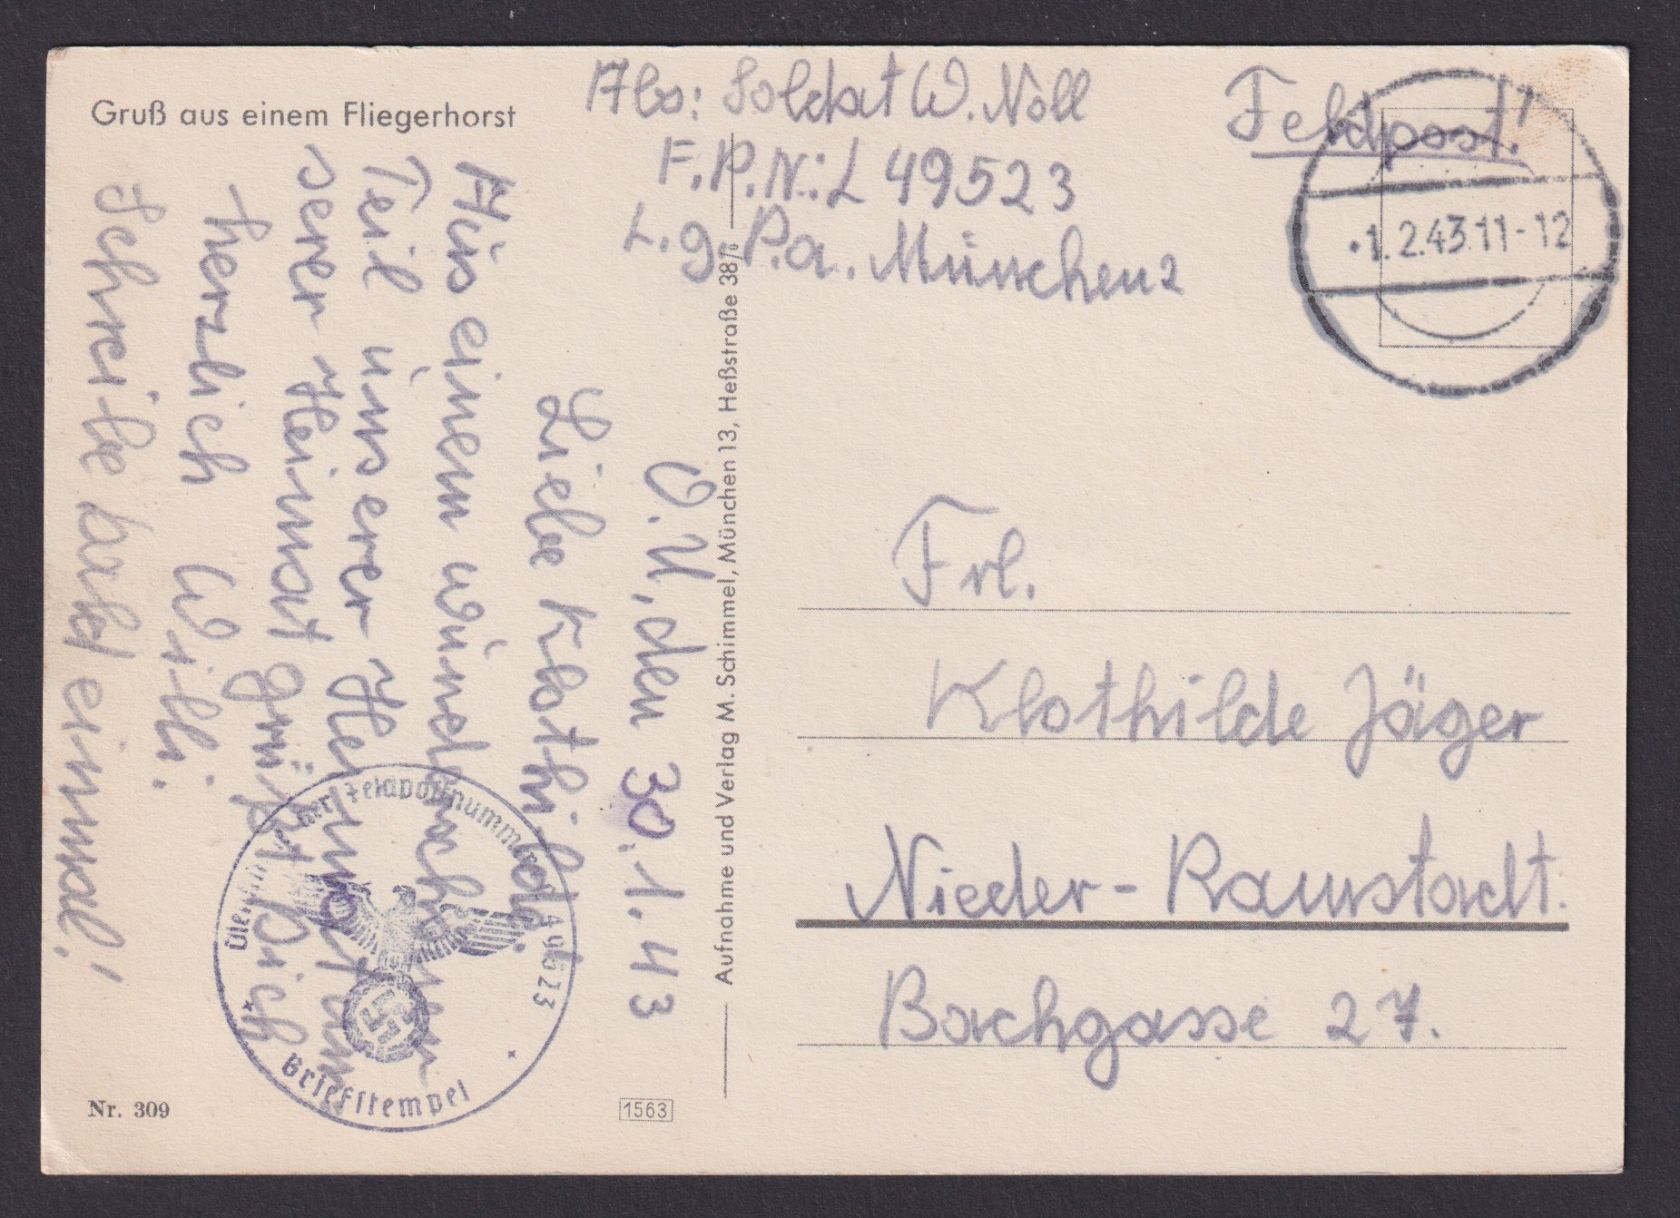 Gruß aus einem Fliegerhorst
Abs: Soldat W. Noll
F.P.N.: L 49523
L.g.P.a. München 2
Feldpost!
1.2.43.11-12
O.U, den 30.1.43
Liebe Klothilde.
Aus einem wünderschönen
Teil unserer Heimat un
serer Heimat grüßt Dich
herzlich Willi.
Schreibe bald einmal!
Feldpostnummer
23
Briefstempel
Aufnahme und Verlag M. Schimmel, München 13, Heßstraße 38/
Frl.
Klothilde Jäger
Nieder-Ramstadt.
Bachgasse 27.
Nr. 309
1563